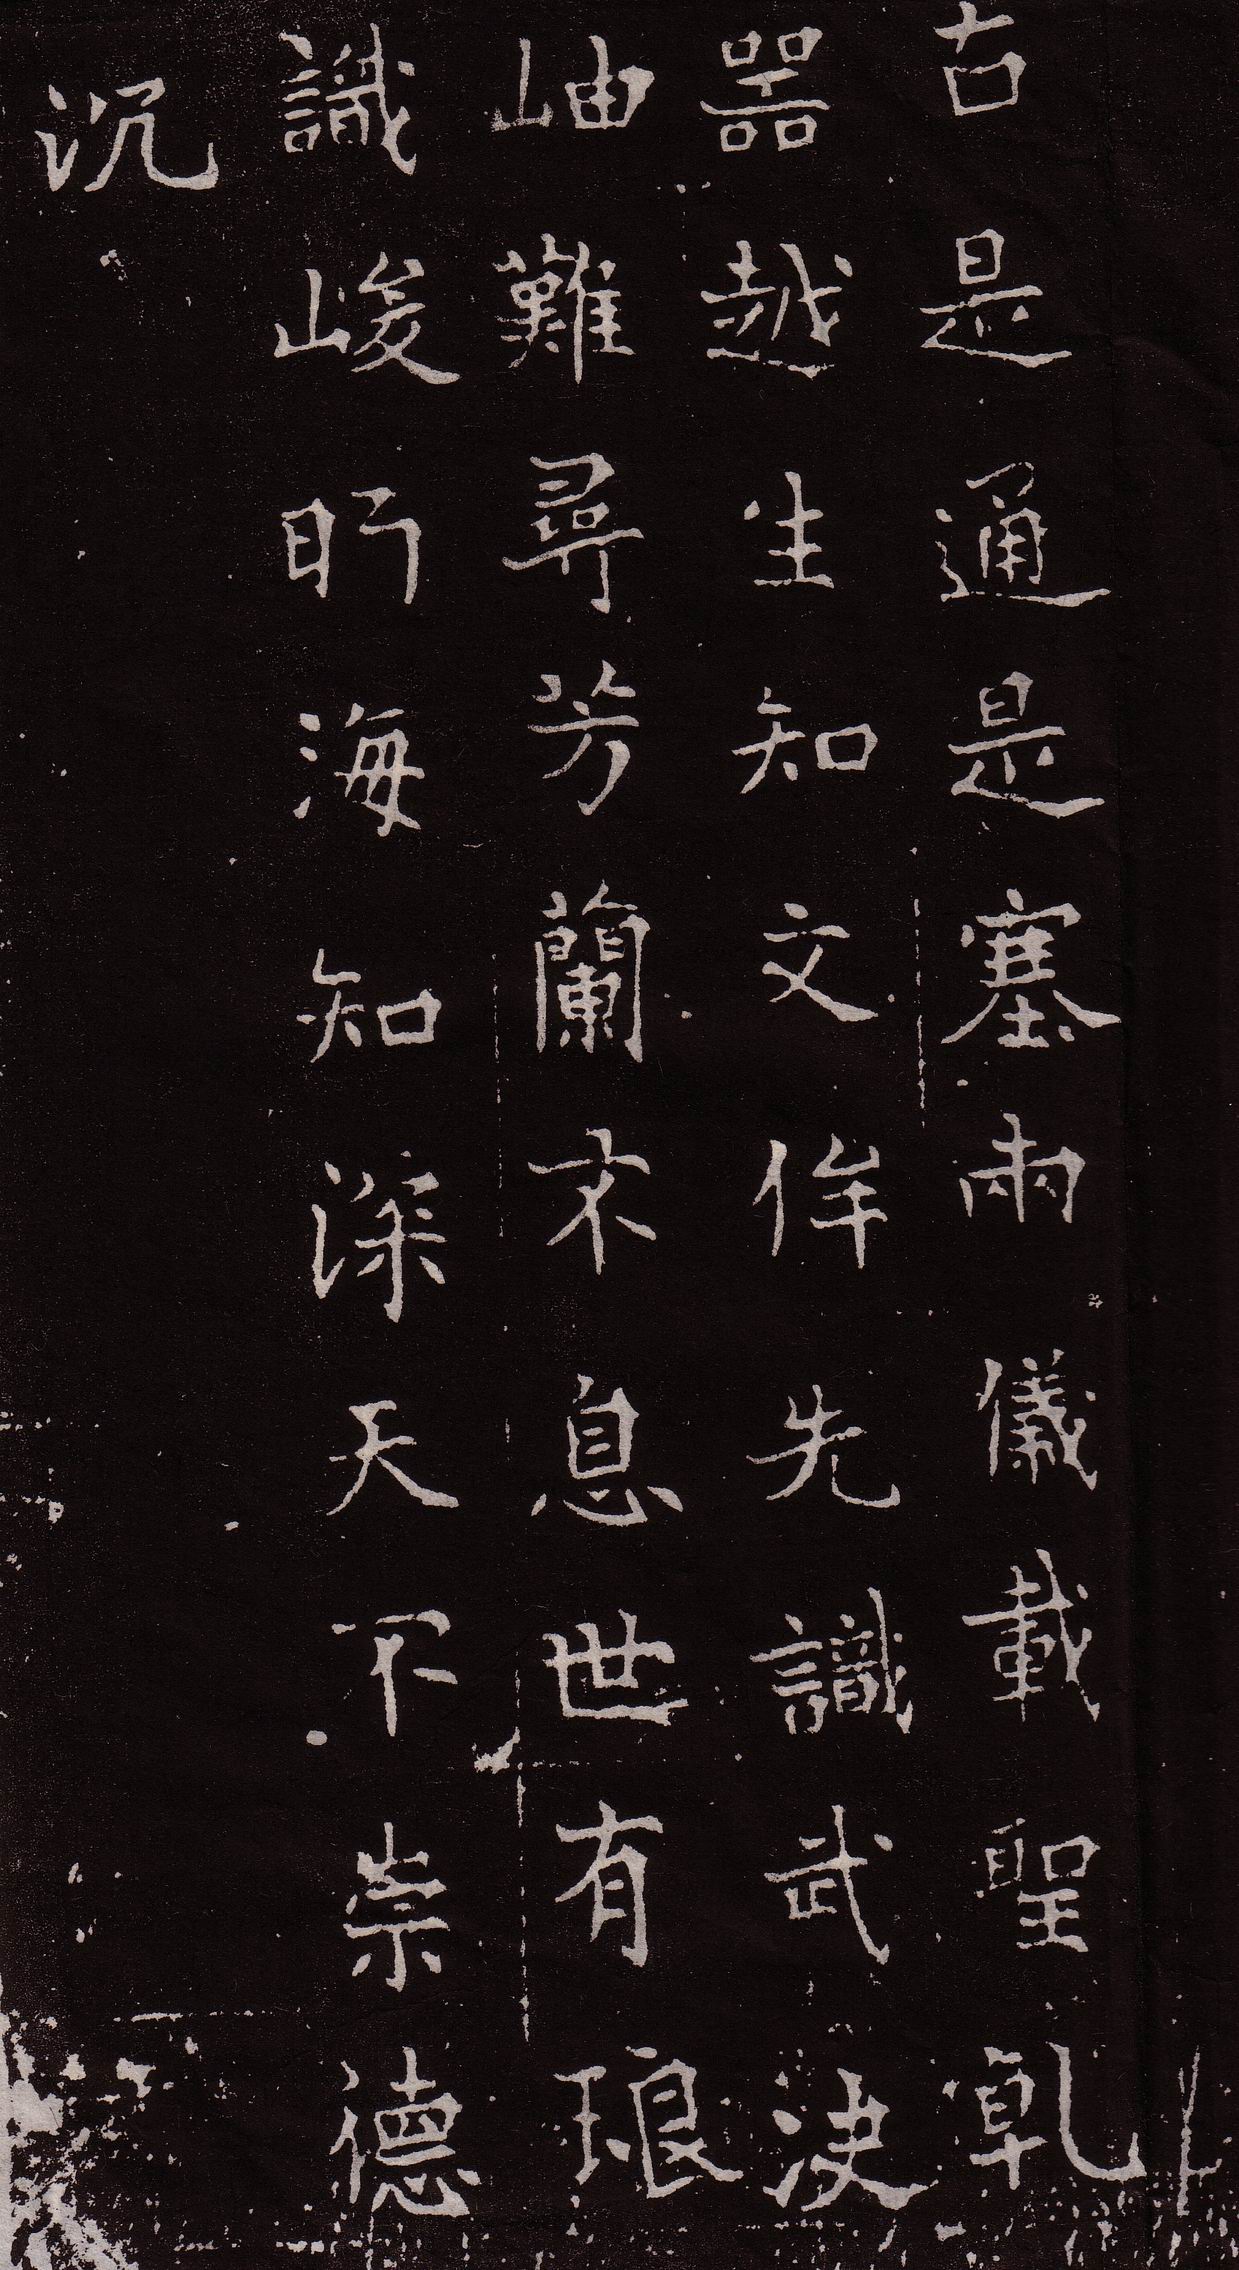 古是通是塞兩儀載聖乹
噐越生知文侔先識武決
岫難尋芳蘭不息世有琅
識峻眄海知深天下崇德
沉